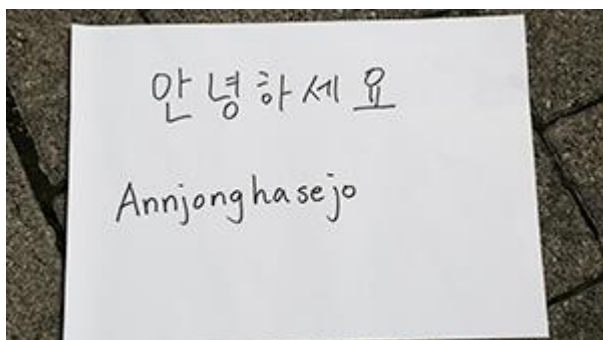 안녕하세요
Annjonghasejo